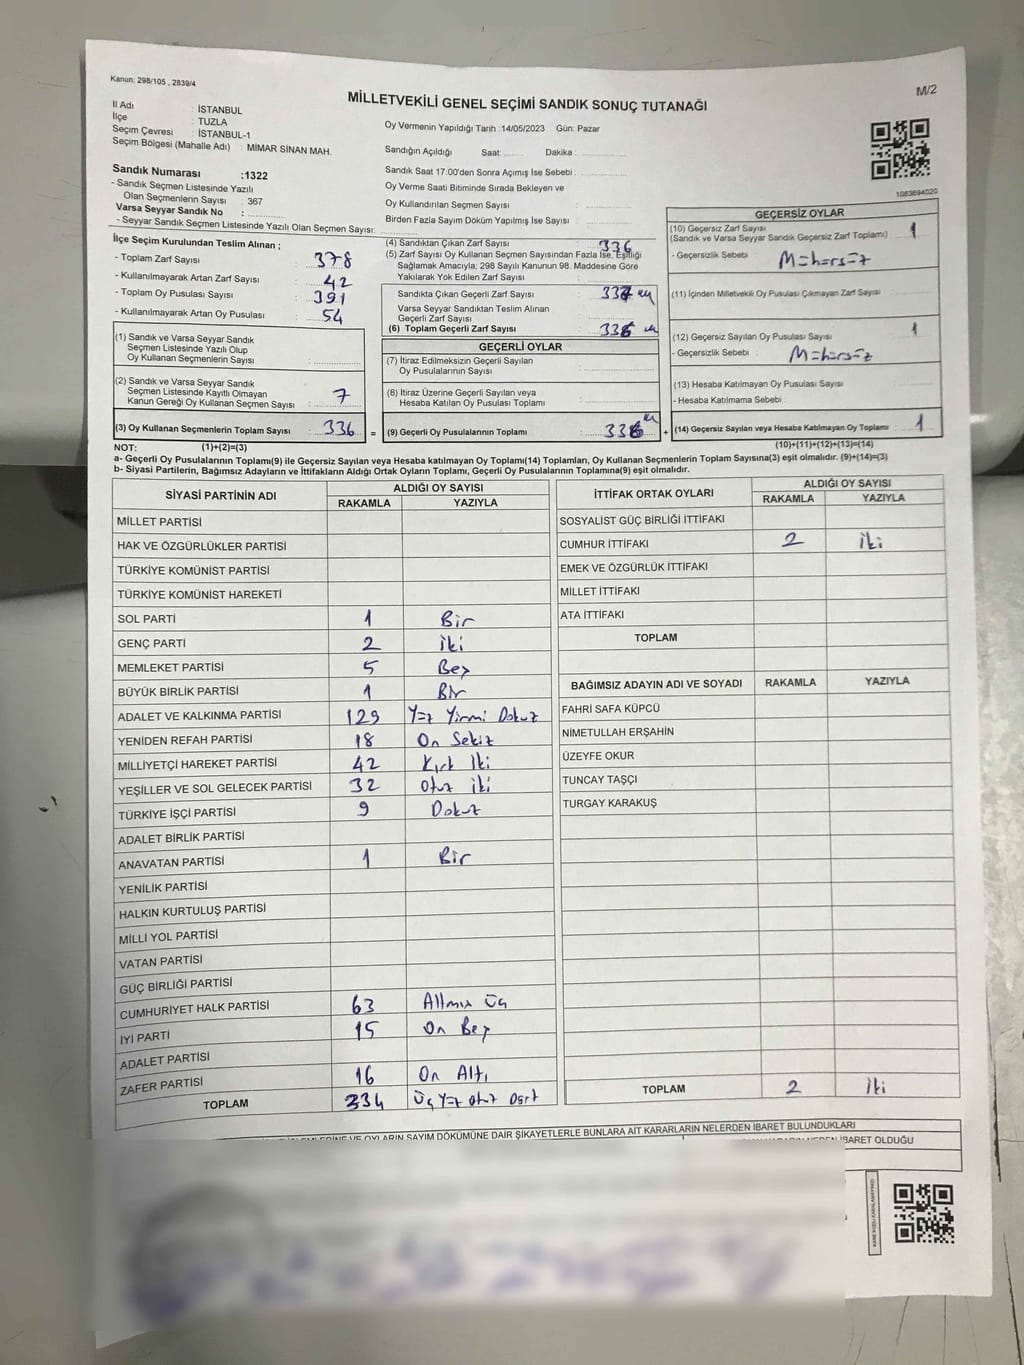 Kanun; 298/105 , 2839/4
M/2
MİLLETVEKİLİ GENEL SEÇİMİ SANDIK SONUÇ TUTANAĞI
İl Adı : İSTANBUL
İlçe : TUZLA
Seçim Çevresi : İSTANBUL-1
Seçim Bölgesi (Mahalle Adı) : MİMAR SİNAN MAH.
Oy Vermenin Yapıldığı Tarih :14/05/2023 Gün: Pazar
Sandığın Açıldığı Saat: ........ Dakika : ..............
Sandık Saat 17:00'den Sonra Açımış İse Sebebi : ..............
Oy Verme Saati Bitiminde Sırada Bekleyen ve
Oy Kullandırılan Seçmen Sayısı : ..............
Birden Fazla Sayım Döküm Yapılmış İse Sayısı : ..............
1083694020
Sandık Numarası :1322
- Sandık Seçmen Listesinde Yazılı
Olan Seçmenlerin Sayısı : 367
Varsa Seyyar Sandık No : ..............
- Seyyar Sandık Seçmen Listesinde Yazılı Olan Seçmen Sayısı: ..............
İlçe Seçim Kurulundan Teslim Alınan ;
- Toplam Zarf Sayısı : 378
- Kullanılmayarak Artan Zarf Sayısı : 42
- Toplam Oy Pusulası Sayısı : 391
- Kullanılmayarak Artan Oy Pusulası : 54
(1) Sandık ve Varsa Seyyar Sandık
Seçmen Listesinde Yazılı Olup
Oy Kullanan Seçmenlerin Sayısı : ..............
(2) Sandık ve Varsa Seyyar Sandık
Seçmen Listesinde Kayıtlı Olmayan
Kanun Gereği Oy Kullanan Seçmen Sayısı : 7
(3) Oy Kullanan Seçmenlerin Toplam Sayısı : 336 =
(4) Sandıktan Çıkan Zarf Sayısı : 336
(5) Zarf Sayısı Oy Kullanan Seçmen Sayısından Fazla İse, Eşitliği
Sağlamak Amacıyla; 298 Sayılı Kanunun 98. Maddesine Göre
Yakılarak Yok Edilen Zarf Sayısı : ..............
Sandıkta Çıkan Geçerli Zarf Sayısı :
Varsa Seyyar Sandıktan Teslim Alınan
Geçerli Zarf Sayısı : ..............
(6) Toplam Geçerli Zarf Sayısı :
GEÇERLİ OYLAR
(7) İtiraz Edilmeksizin Geçerli Sayılan
Oy Pusulalarının Sayısı : ..............
(8) İtiraz Üzerine Geçerli Sayılan veya
Hesaba Katılan Oy Pusulası Toplamı : ..............
(9) Geçerli Oy Pusulalarının Toplamı : +
GEÇERSİZ OYLAR
(10) Geçersiz Zarf Sayısı : 1
(Sandık ve Varsa Seyyar Sandık Geçersiz Zarf Toplamı)
- Geçersizlik Sebebi : Mühürsüz
(11) İçinden Milletvekili Oy Pusulası Çıkmayan Zarf Sayısı : ........
(12) Geçersiz Sayılan Oy Pusulası Sayısı : 1
- Geçersizlik Sebebi : Mühürsüz
(13) Hesaba Katılmayan Oy Pusulası Sayısı : ........
- Hesaba Katılmama Sebebi : ..............
(14) Geçersiz Sayılan veya Hesaba Katılmayan Oy Toplamı : 1
NOT: (1)+(2)=(3) (10)+(11)+(12)+(13)=(14)
a- Geçerli Oy Pusulalarının Toplamı(9) ile Geçersiz Sayılan veya Hesaba Katılmayan Oy Toplamı(14) Toplamları, Oy Kullanan Seçmenlerin Toplam Sayısına(3) eşit olmalıdır. (9)+(14)=(3)
b- Siyasi Partilerin, Bağımsız Adayların ve İttifakların Aldığı Ortak Oyların Toplamı, Geçerli Oy Pusulalarının Toplamına(9) eşit olmalıdır.
SİYASİ PARTİNİN ADI ALDIĞI OY SAYISI
RAKAMLA YAZIYLA
MİLLET PARTİSİ
HAK VE ÖZGÜRLÜKLER PARTİSİ
TÜRKİYE KOMÜNİST PARTİSİ
TÜRKİYE KOMÜNİST HAREKETİ
SOL PARTİ 1 Bir
GENÇ PARTİ 2 iki
MEMLEKET PARTİSİ 5 Beş
BÜYÜK BİRLİK PARTİSİ 1 Bir
ADALET VE KALKINMA PARTİSİ 129 Yüz Yirmi Dokuz
YENİDEN REFAH PARTİSİ 18 On Sekiz
MİLLİYETÇİ HAREKET PARTİSİ 42 Kırk İki
YEŞİLLER VE SOL GELECEK PARTİSİ 32 Otuz iki
TÜRKİYE İŞÇİ PARTİSİ 9 Dokuz
ADALET BİRLİK PARTİSİ
ANAVATAN PARTİSİ 1 Bir
YENİLİK PARTİSİ
HALKIN KURTULUŞ PARTİSİ
MİLLİ YOL PARTİSİ
VATAN PARTİSİ
GÜÇ BİRLİĞİ PARTİSİ
CUMHURİYET HALK PARTİSİ 63 Altmış Üç
İYİ PARTİ 15 On Beş
ADALET PARTİSİ
ZAFER PARTİSİ 16 On Altı
TOPLAM 334 Üç Yüz Otuz Dört
İTTİFAK ORTAK OYLARI ALDIĞI OY SAYISI
RAKAMLA YAZIYLA
SOSYALİST GÜÇ BİRLİĞİ İTTİFAKI
CUMHUR İTTİFAKI 2 iki
EMEK VE ÖZGÜRLÜK İTTİFAKI
MİLLET İTTİFAKI
ATA İTTİFAKI
TOPLAM
BAĞIMSIZ ADAYIN ADI VE SOYADI RAKAMLA YAZIYLA
FAHRİ SAFA KÜPCÜ
NİMETULLAH ERŞAHİN
ÜZEYFE OKUR
TUNCAY TAŞÇI
TURGAY KARAKUŞ
TOPLAM 2 iki
VE OYLARIN SAYIM DÖKÜMÜNE DAİR ŞİKAYETLERLE BUNLARA AİT KARARLARIN NELERDEN İBARET BULUNDUKLARI
İBARET OLDUĞU